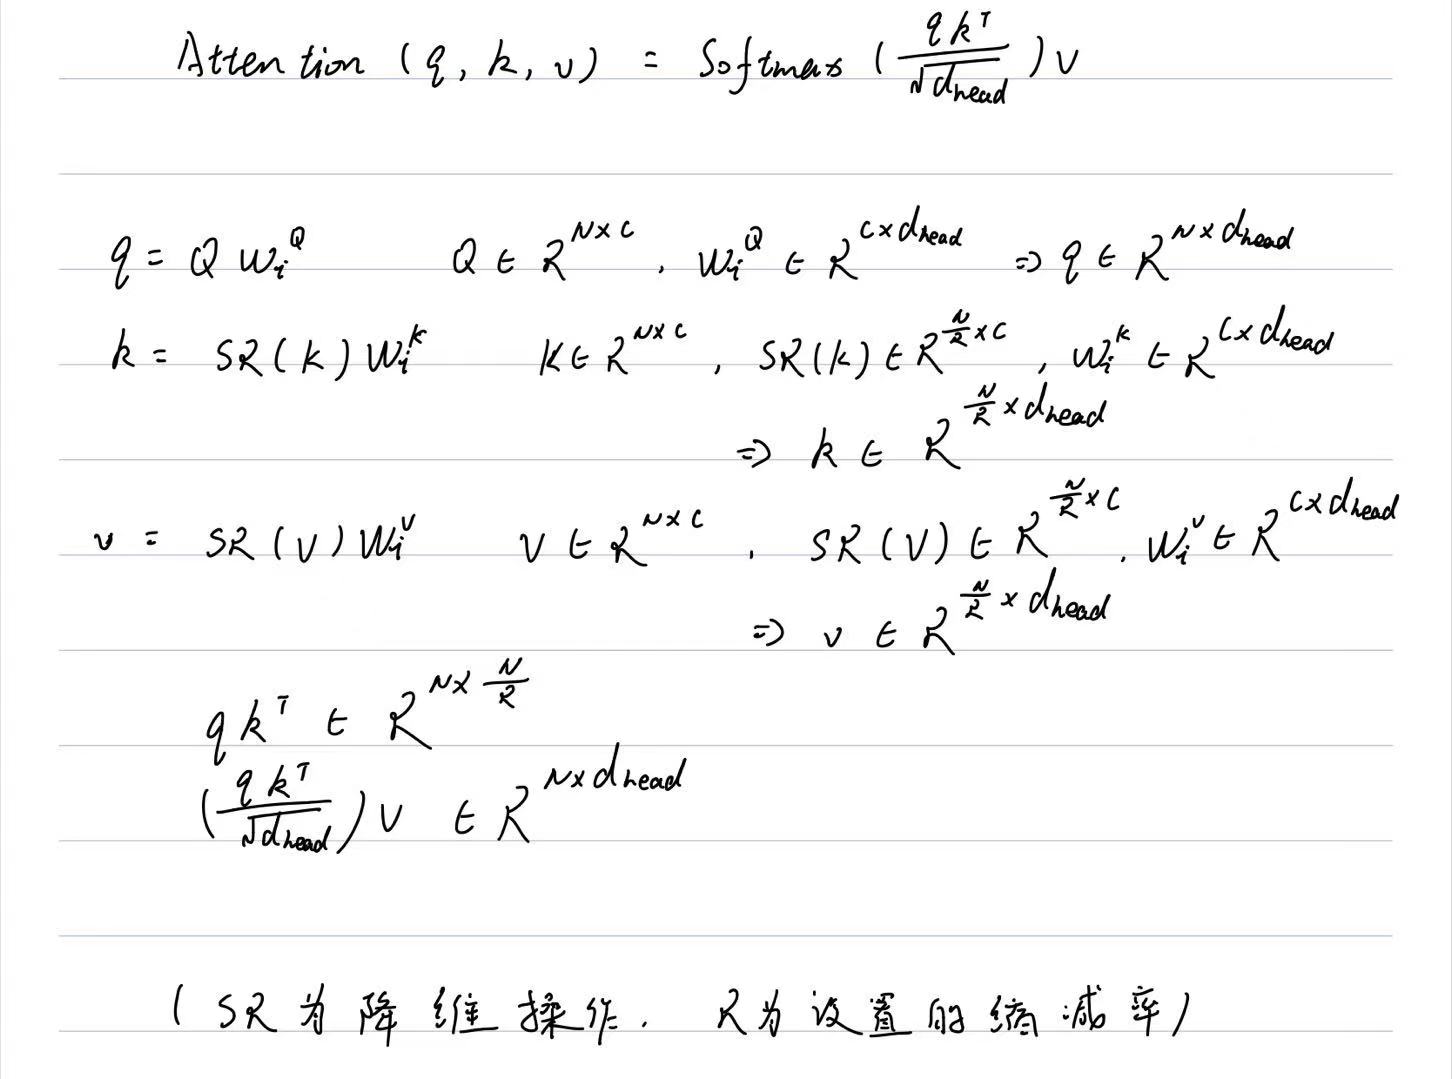 Attention (q, k, v) = Softmax (\frac{q k^T}{\sqrt{d_{head}}}) V
q = Q W_i^Q   Q ∈ R^{N×C} , W_i^Q ∈ R^{C×d_{head}} ⇒ q ∈ R^{N×d_{head}}
k = SR(K) W_i^K   K ∈ R^{N×C} , SR(K) ∈ R^{\frac{N}{R}×C} , W_i^K ∈ R^{C×d_{head}}
⇒ k ∈ R^{\frac{N}{R}×d_{head}}
v = SR(V) W_i^V   V ∈ R^{N×C} , SR(V) ∈ R^{\frac{N}{R}×C} , W_i^V ∈ R^{C×d_{head}}
⇒ v ∈ R^{\frac{N}{R}×d_{head}}
q k^T ∈ R^{N×\frac{N}{R}}
(\frac{q k^T}{\sqrt{d_{head}}}) V ∈ R^{N×d_{head}}
(SR为降维操作. R为设置的缩减率)